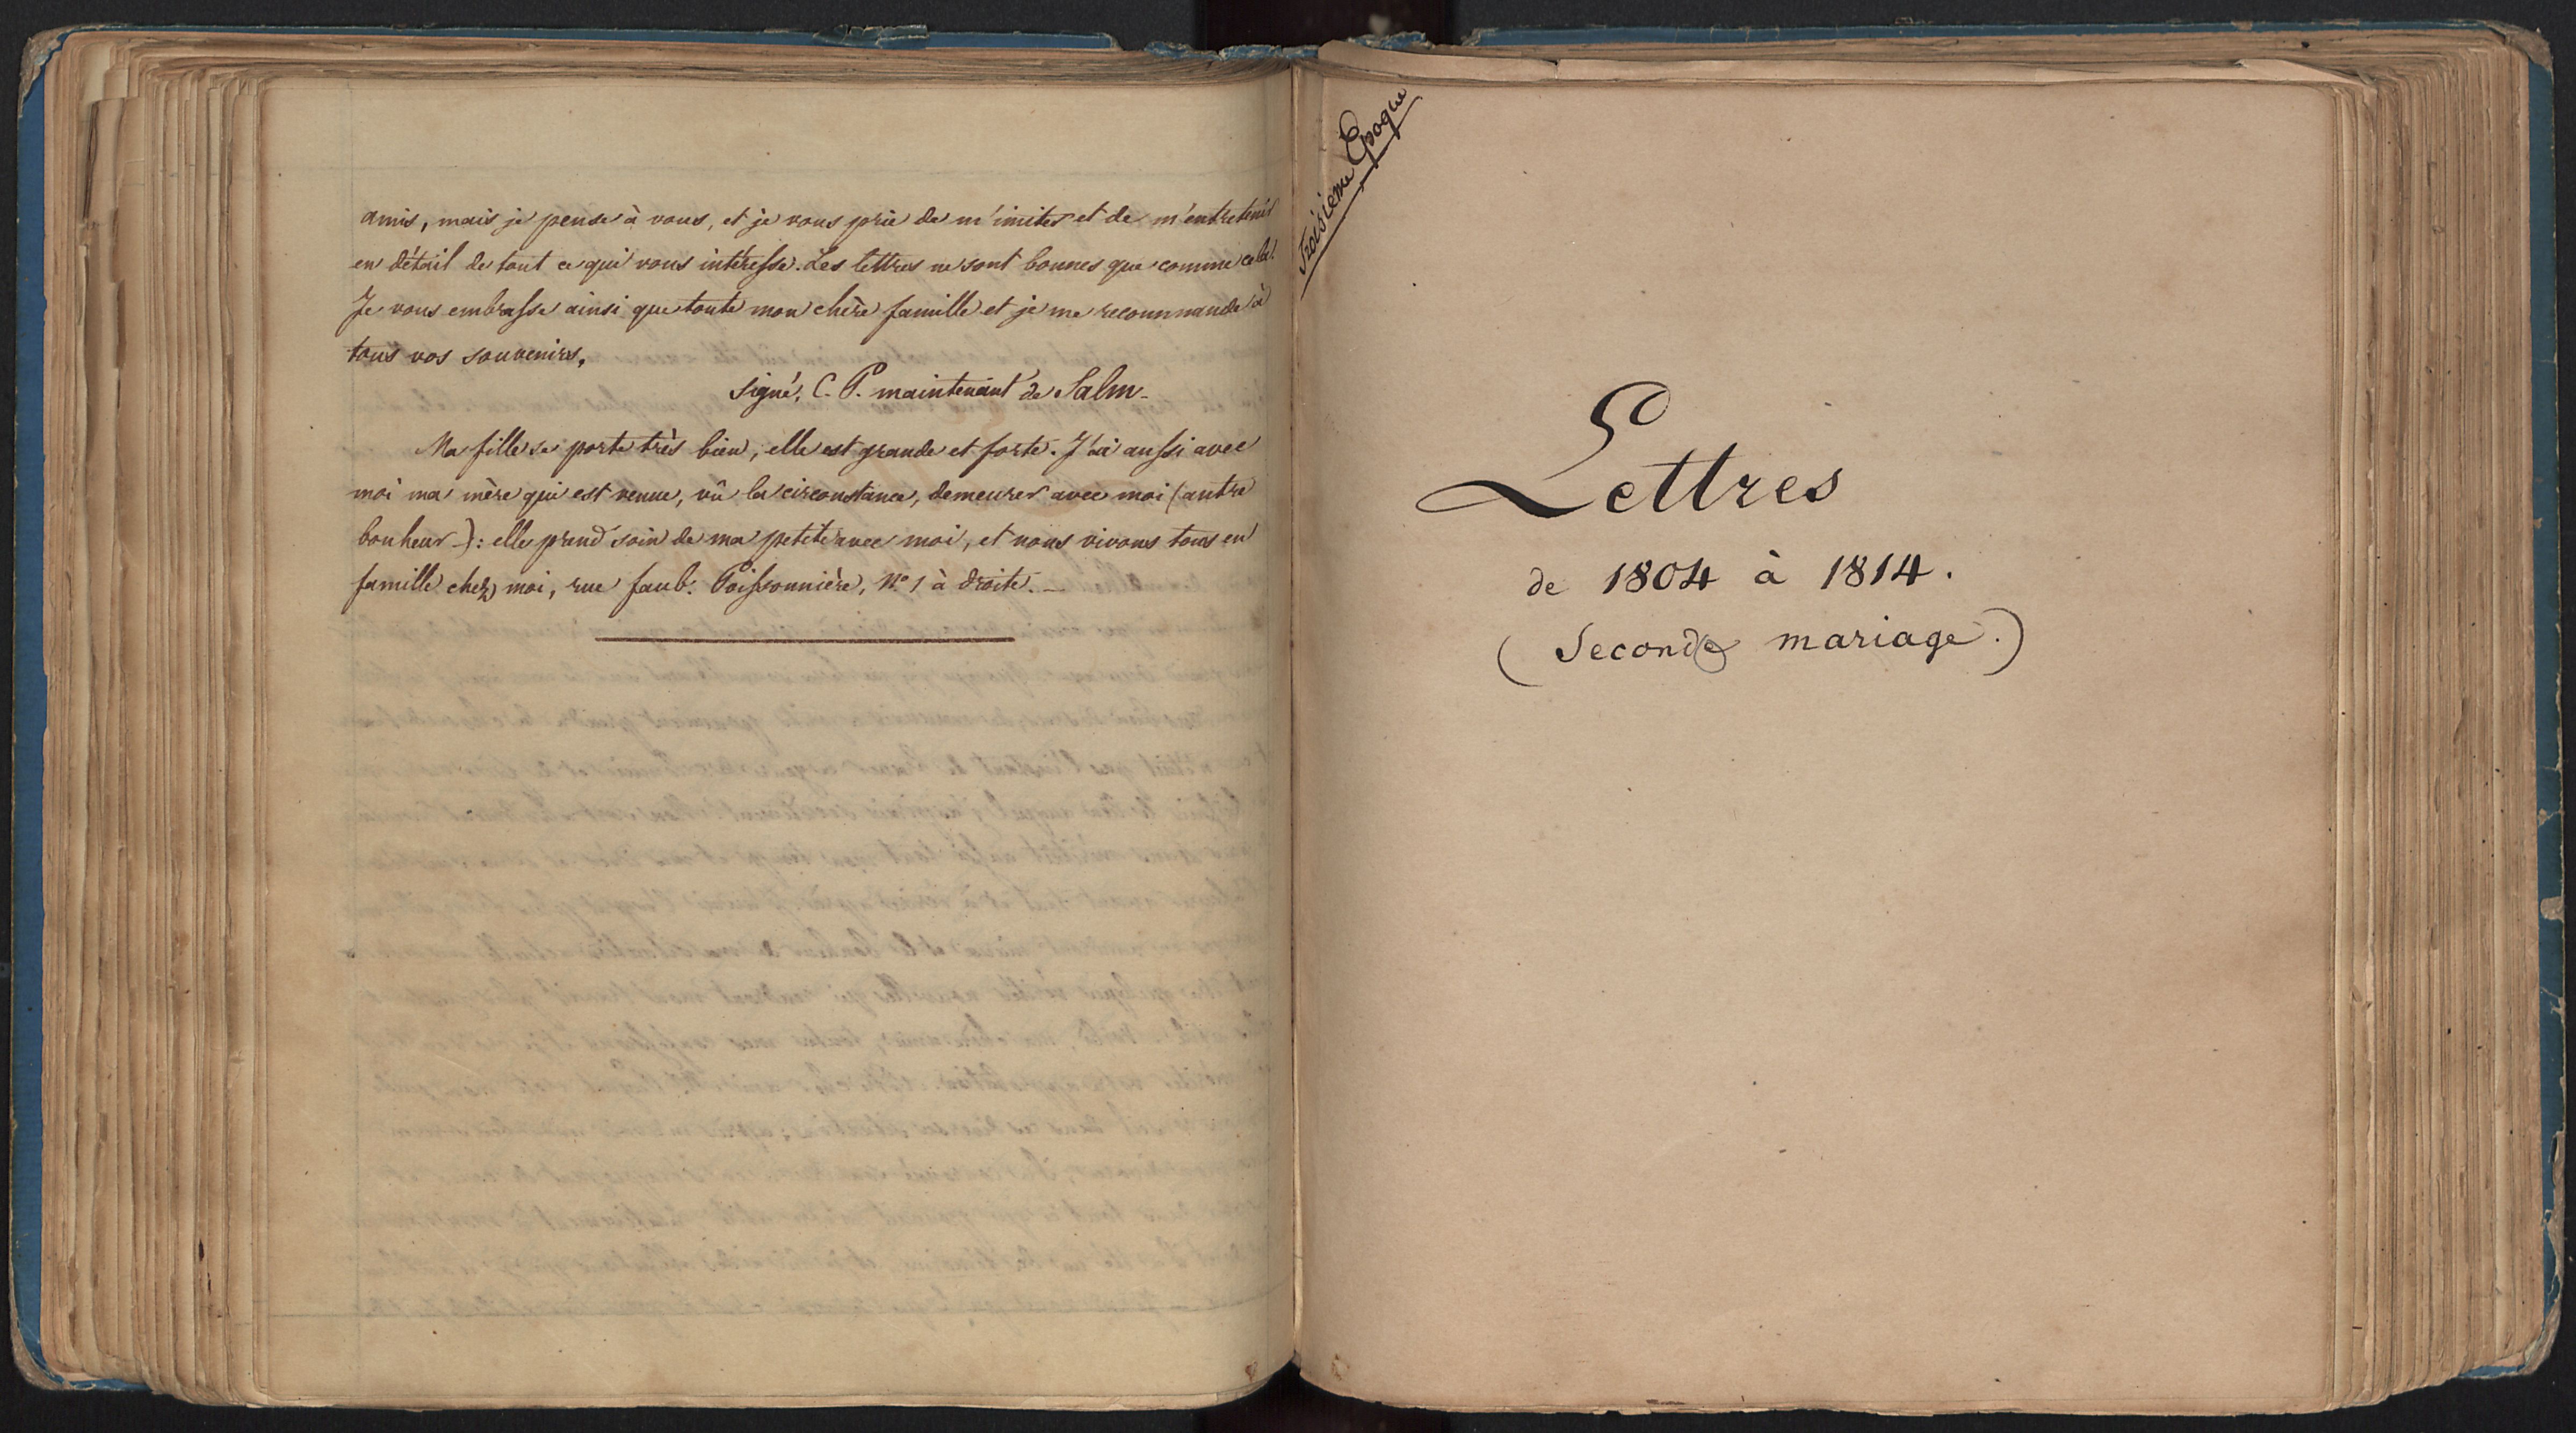 amis, mais je pense à vous, et je vous prie de m'imiter et de m'entretenir
en détail de tout ce qui vous intéresse. Les lettres ne sont bonnes que comme cela.
Je vous embrasse ainsi que toute mon chère famille et je me recommande à
tous vos souvenirs,
signé, C. P. maintenant de Salm.
Ma fille se porte très bien, elle est grande et forte. J'ai aussi avec
moi ma mère qui est venue, vû la circonstance, demeurer avec moi (autre
bonheur): elle prend soin de ma petite avec moi, et nous vivons tous en
famille chez moi, rue faub. Poissonnière, N.° 1 à droite.
Troisieme Epoque
Lettres
de 1804 à 1814.
(Second mariage.)